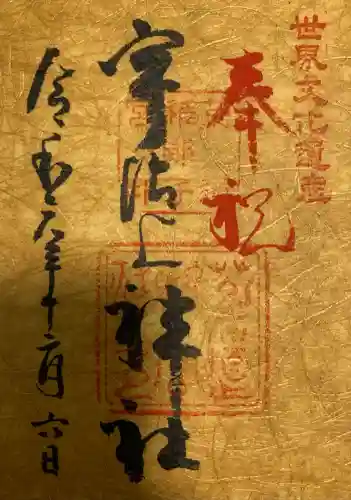 世界文化遺産
奉祝
宇治上神社
令和元年十一月六日